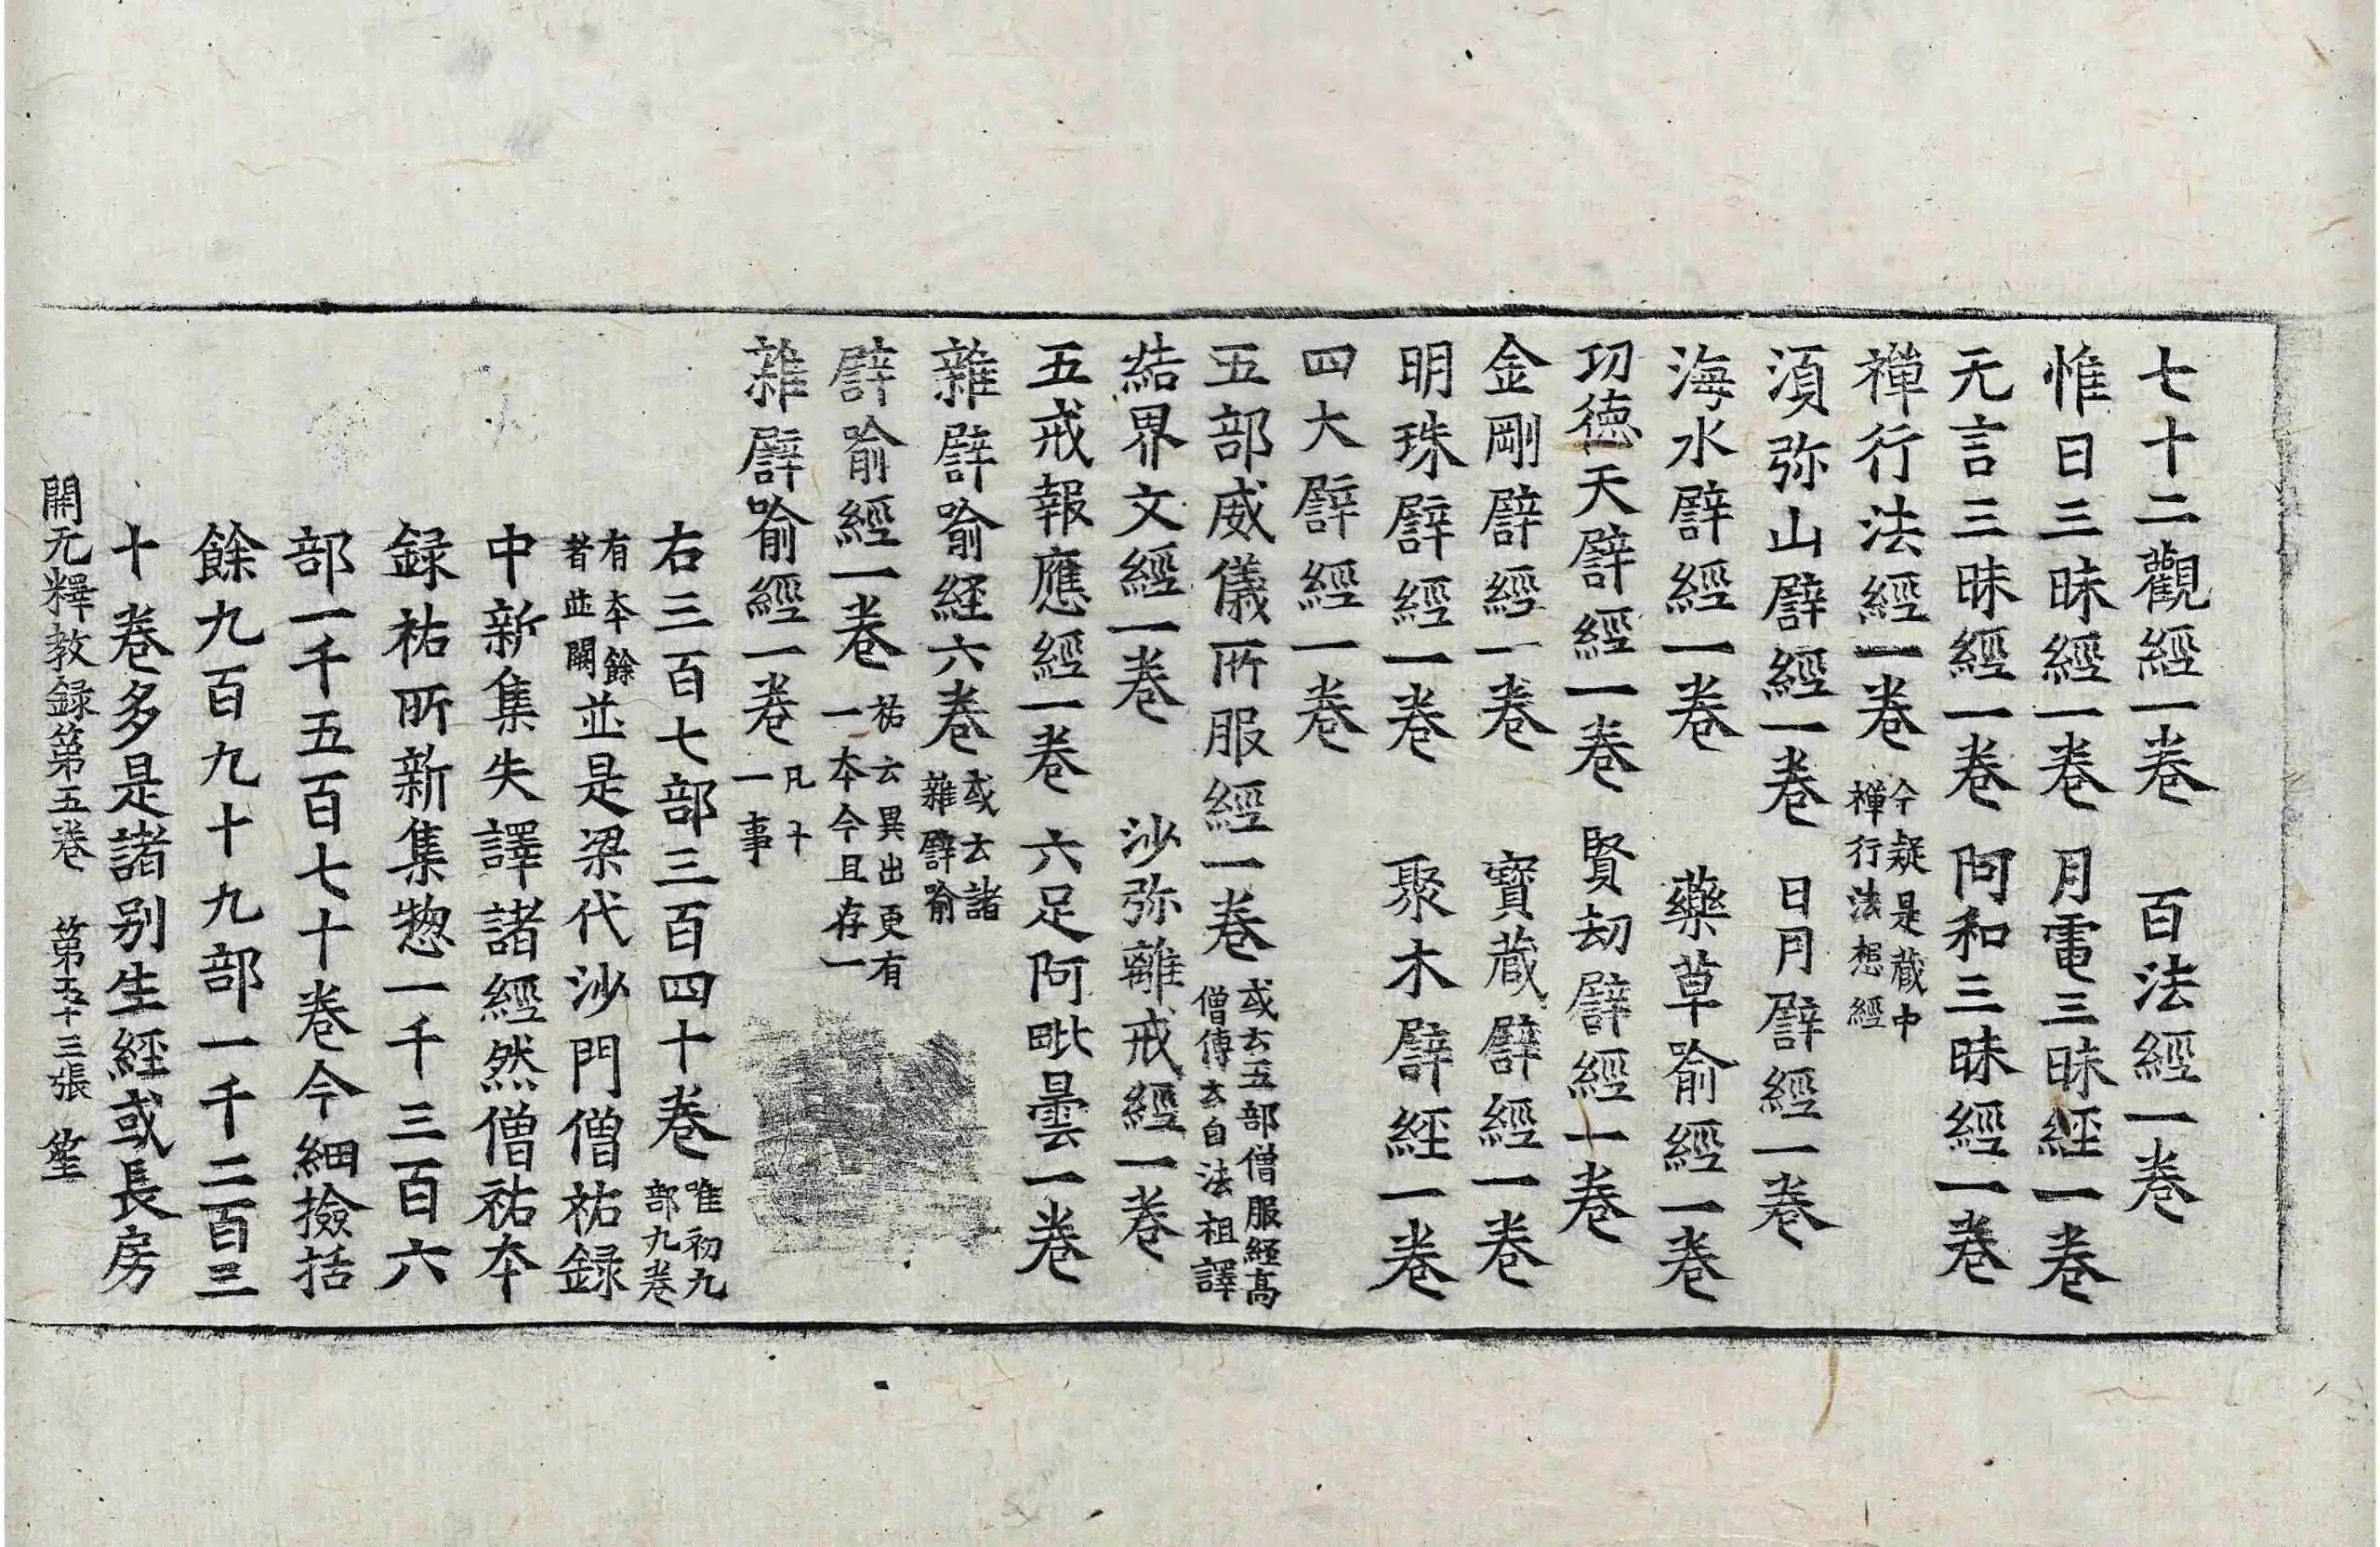 七十二觀經一卷　百法經一卷
惟日三昧經一卷　月電三昧経一卷
无言三昧經一卷　阿和三昧經一卷
禪行法經一卷　今疑是蔵中禪行法想經
湏弥山譬經一卷　日月譬經一卷
海水譬經一卷　藥草喻經一卷
功徳天譬經一卷　賢劫譬經一卷
金剛譬經一卷　寶蔵譬經一卷
明珠譬經一卷　聚木譬経一卷
四大譬經一卷
五部威儀所服經一卷　或云五部僧服経高僧傳云自法祖譯
結界文經一卷　沙弥離戒經一卷
五戒報應經一卷　六足阿毗曇一卷
雜譬喻経六卷　或云諸雜譬喻
譬喻經一卷　祐云異出更有一本今且存一
雜譬喻經一卷　凡十一事
右三百七部三百四十卷　唯初九部九卷
有本餘者並闕　並是梁代沙門僧祐録
中新集失譯諸經然僧祐本
録祐所新集惣一千三百六
部一千五百七十卷今細撿括
餘九百九十九部一千二百三
十卷多是諸别生経或長房
開元釋教録第五卷　第五十三張　笙